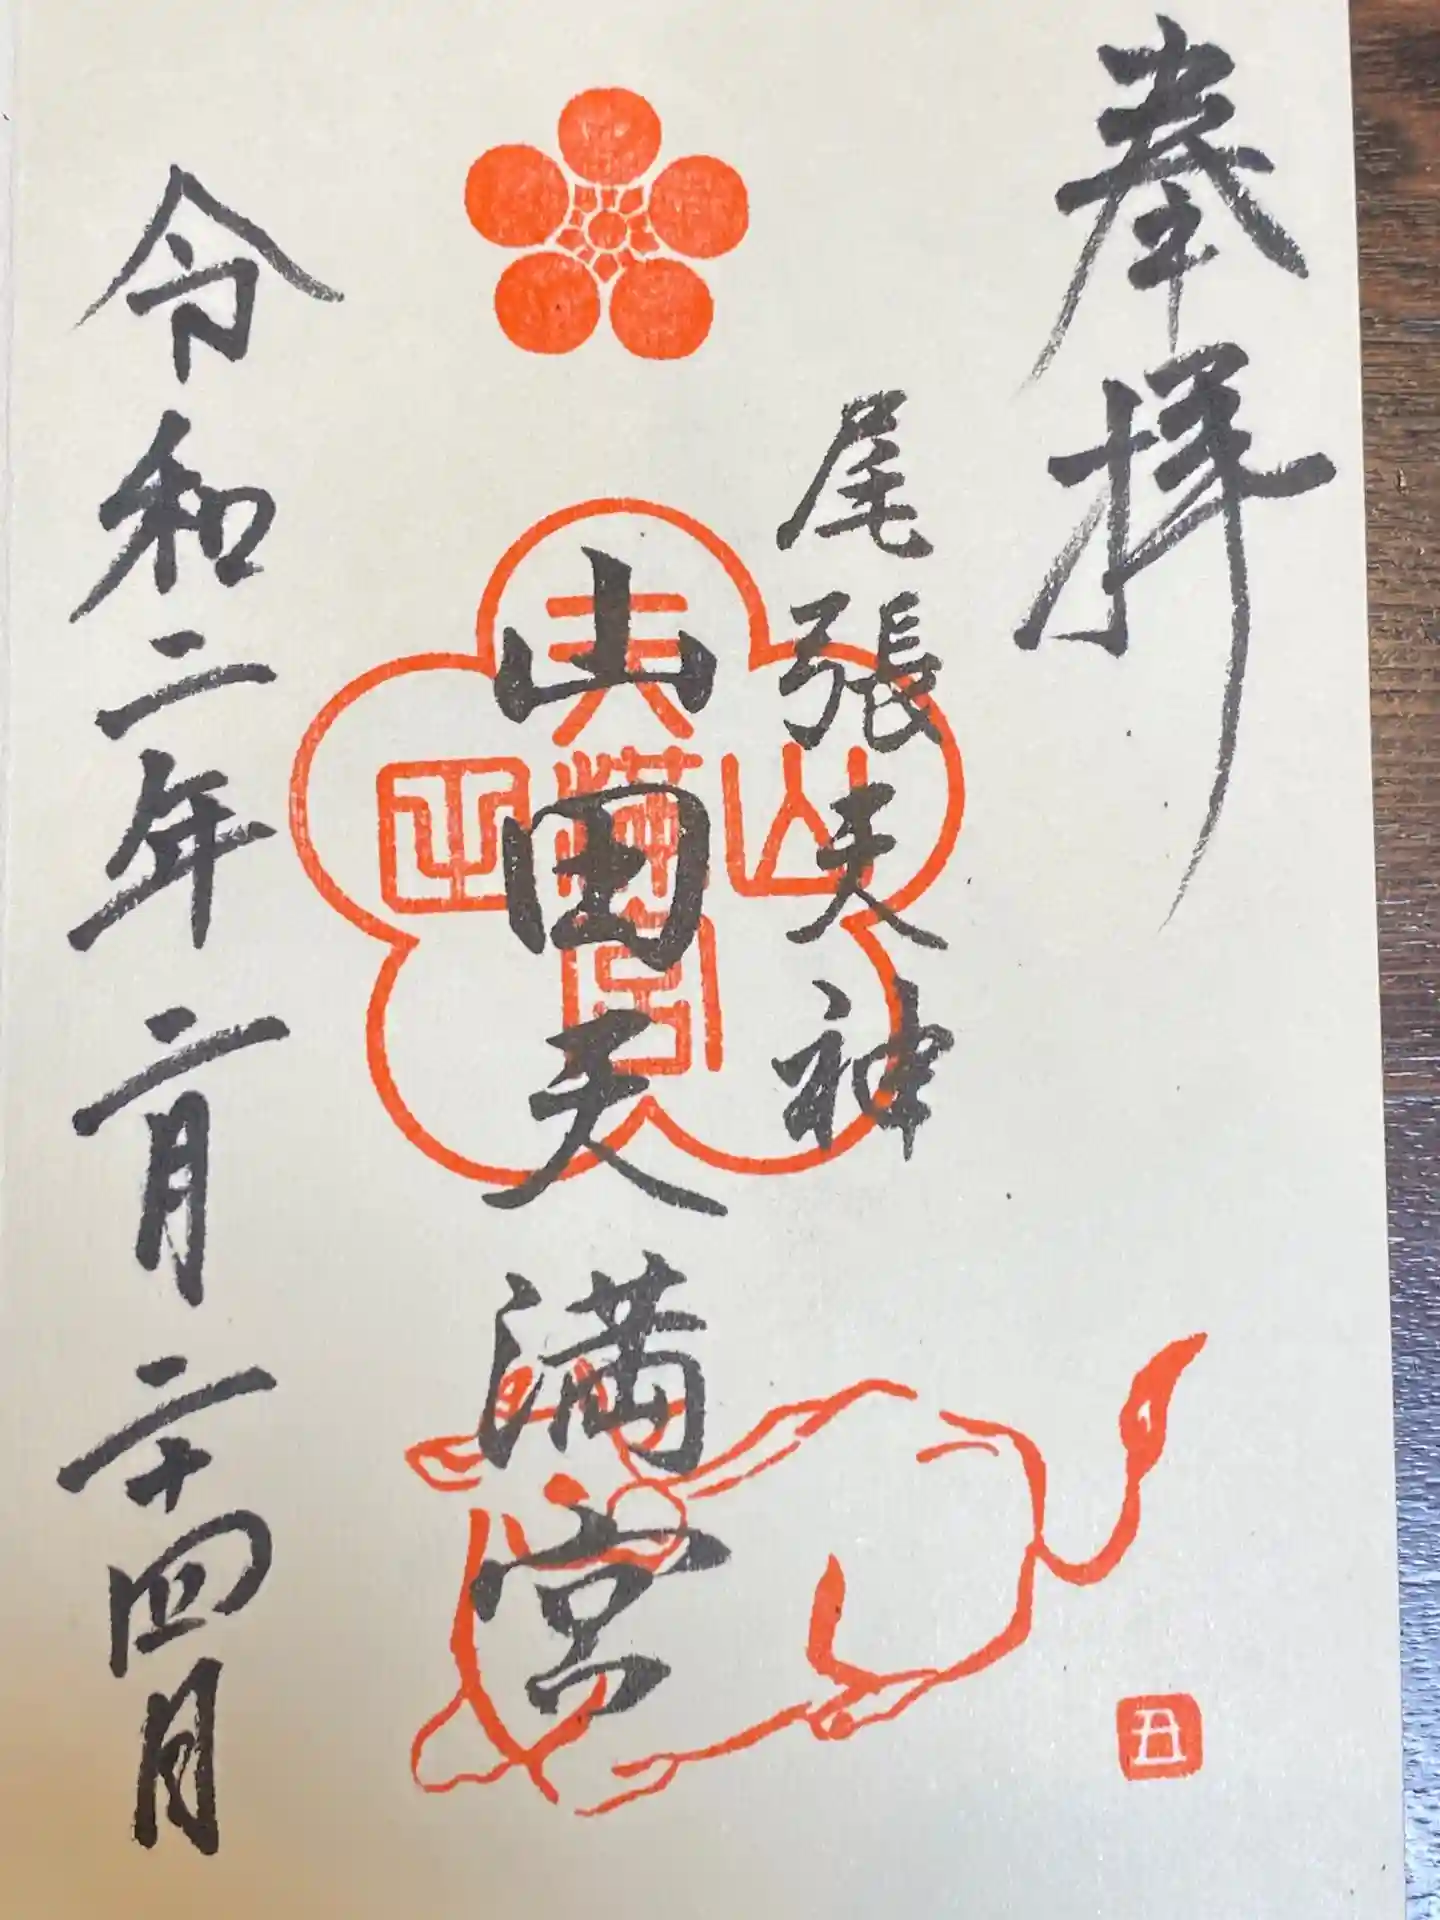 奉拝
尾張天神
山田天満宮
令和二年二月二十四日
丑